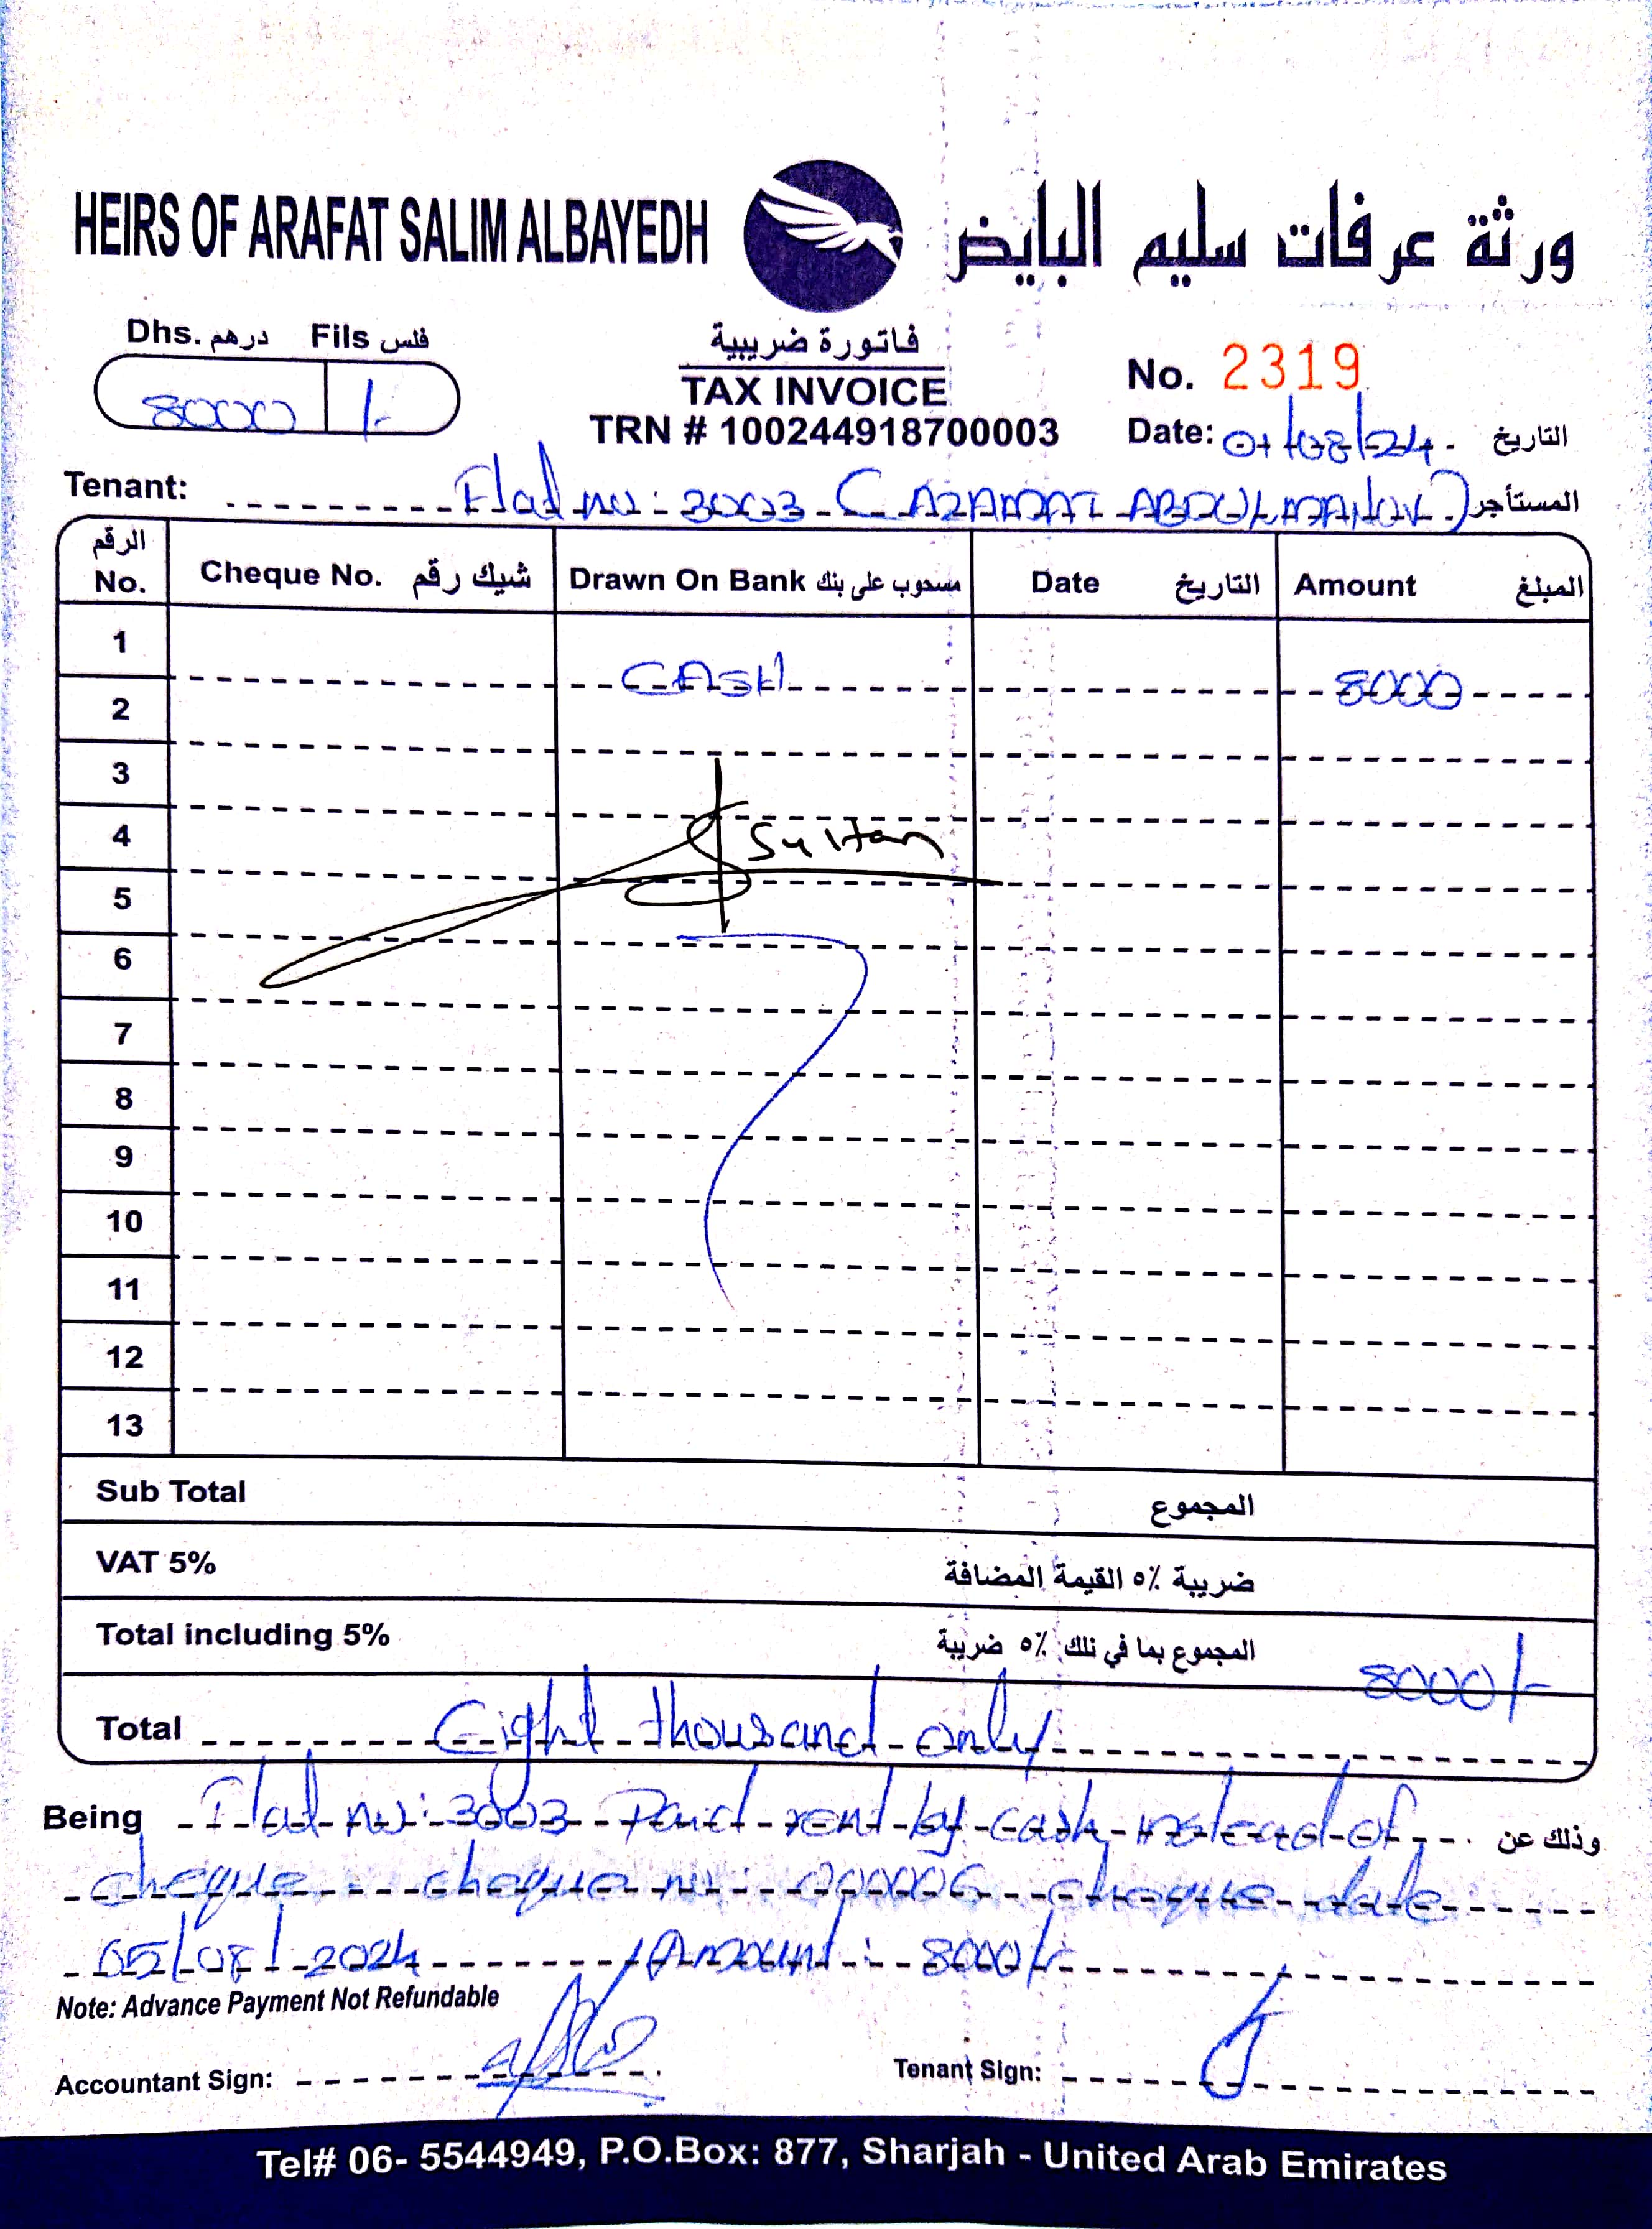 HEIRS OF ARAFAT SALIM ALBAYEDH
ورثة عرفات سليم البايض
Dhs. درهم Fils فلس
8000 /-
فاتورة ضريبية
TAX INVOICE
TRN # 100244918700003
No. 2319
Date: 01/08/24 التاريخ
Tenant: Flat no: 3003 (AZAMAT ABDULMANOV) المستأجر
الرقم No. Cheque No. شيك رقم Drawn On Bank مسحوب على بنك Date التاريخ Amount المبلغ
1 CASH 8000
2
3
4 Sultan
5
6
7
8
9
10
11
12
13
Sub Total المجموع
VAT 5% ضريبة ٥٪ القيمة المضافة
Total including 5% المجموع بما في ذلك ٥٪ ضريبة 8000/-
Total Eight thousand only
Being Flat no: 3003 Paid rent by cash instead of وذلك عن
cheque cheque no: 000006 cheque date
05/08/2024 Amount: 8000/-
Note: Advance Payment Not Refundable
Accountant Sign: Tenant Sign:
Tel# 06- 5544949, P.O.Box: 877, Sharjah - United Arab Emirates